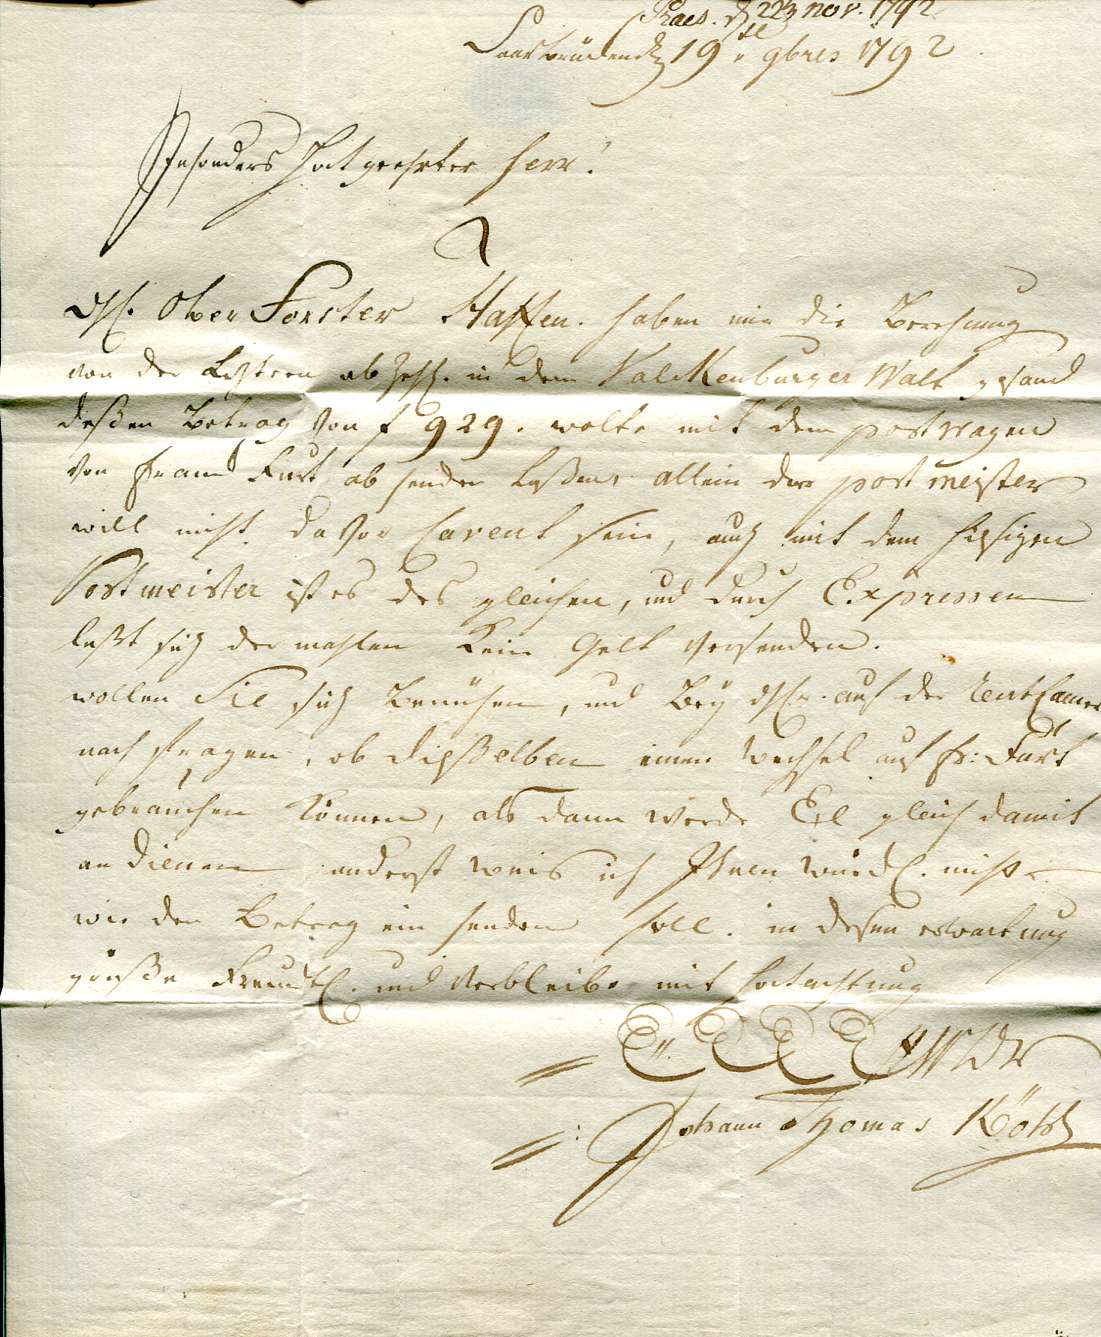 Praes. d 22t nov. 1792.
Saarbrücken d 19te 9bris 1792
Besonders Hochgeehrter Herr!
H. Ober Forster Haffen. haben mir die Berechnung
von der Lezteren abzahl. in dem Falckenburger Walt gesand
deßen Betrag von f 929. wolte mit dem postwagen
von Franckfurt absenden Laßen, allein der postmeister
will nicht davor Cavent sein, auch mit dem hiesigen
Postmeister ist es des gleichen, und durch Expressen
laßt sich der mahlen Kein Gelt versenden.
wollen Sie sich Bemühen, und Bey H. auf der RentCamer
nach fragen, ob dießelben einen Wechsel auf fr: Furt
gebrauchen Können, als dann werde Ihnen gleich damit
an dienen anderst weis ich Ihnen würckl. nicht
wie den Betrag ein senden soll. in deßen erwartung
grüße freundl. und Verbleibe mit Hochachtung
Johann Thomas Röchl